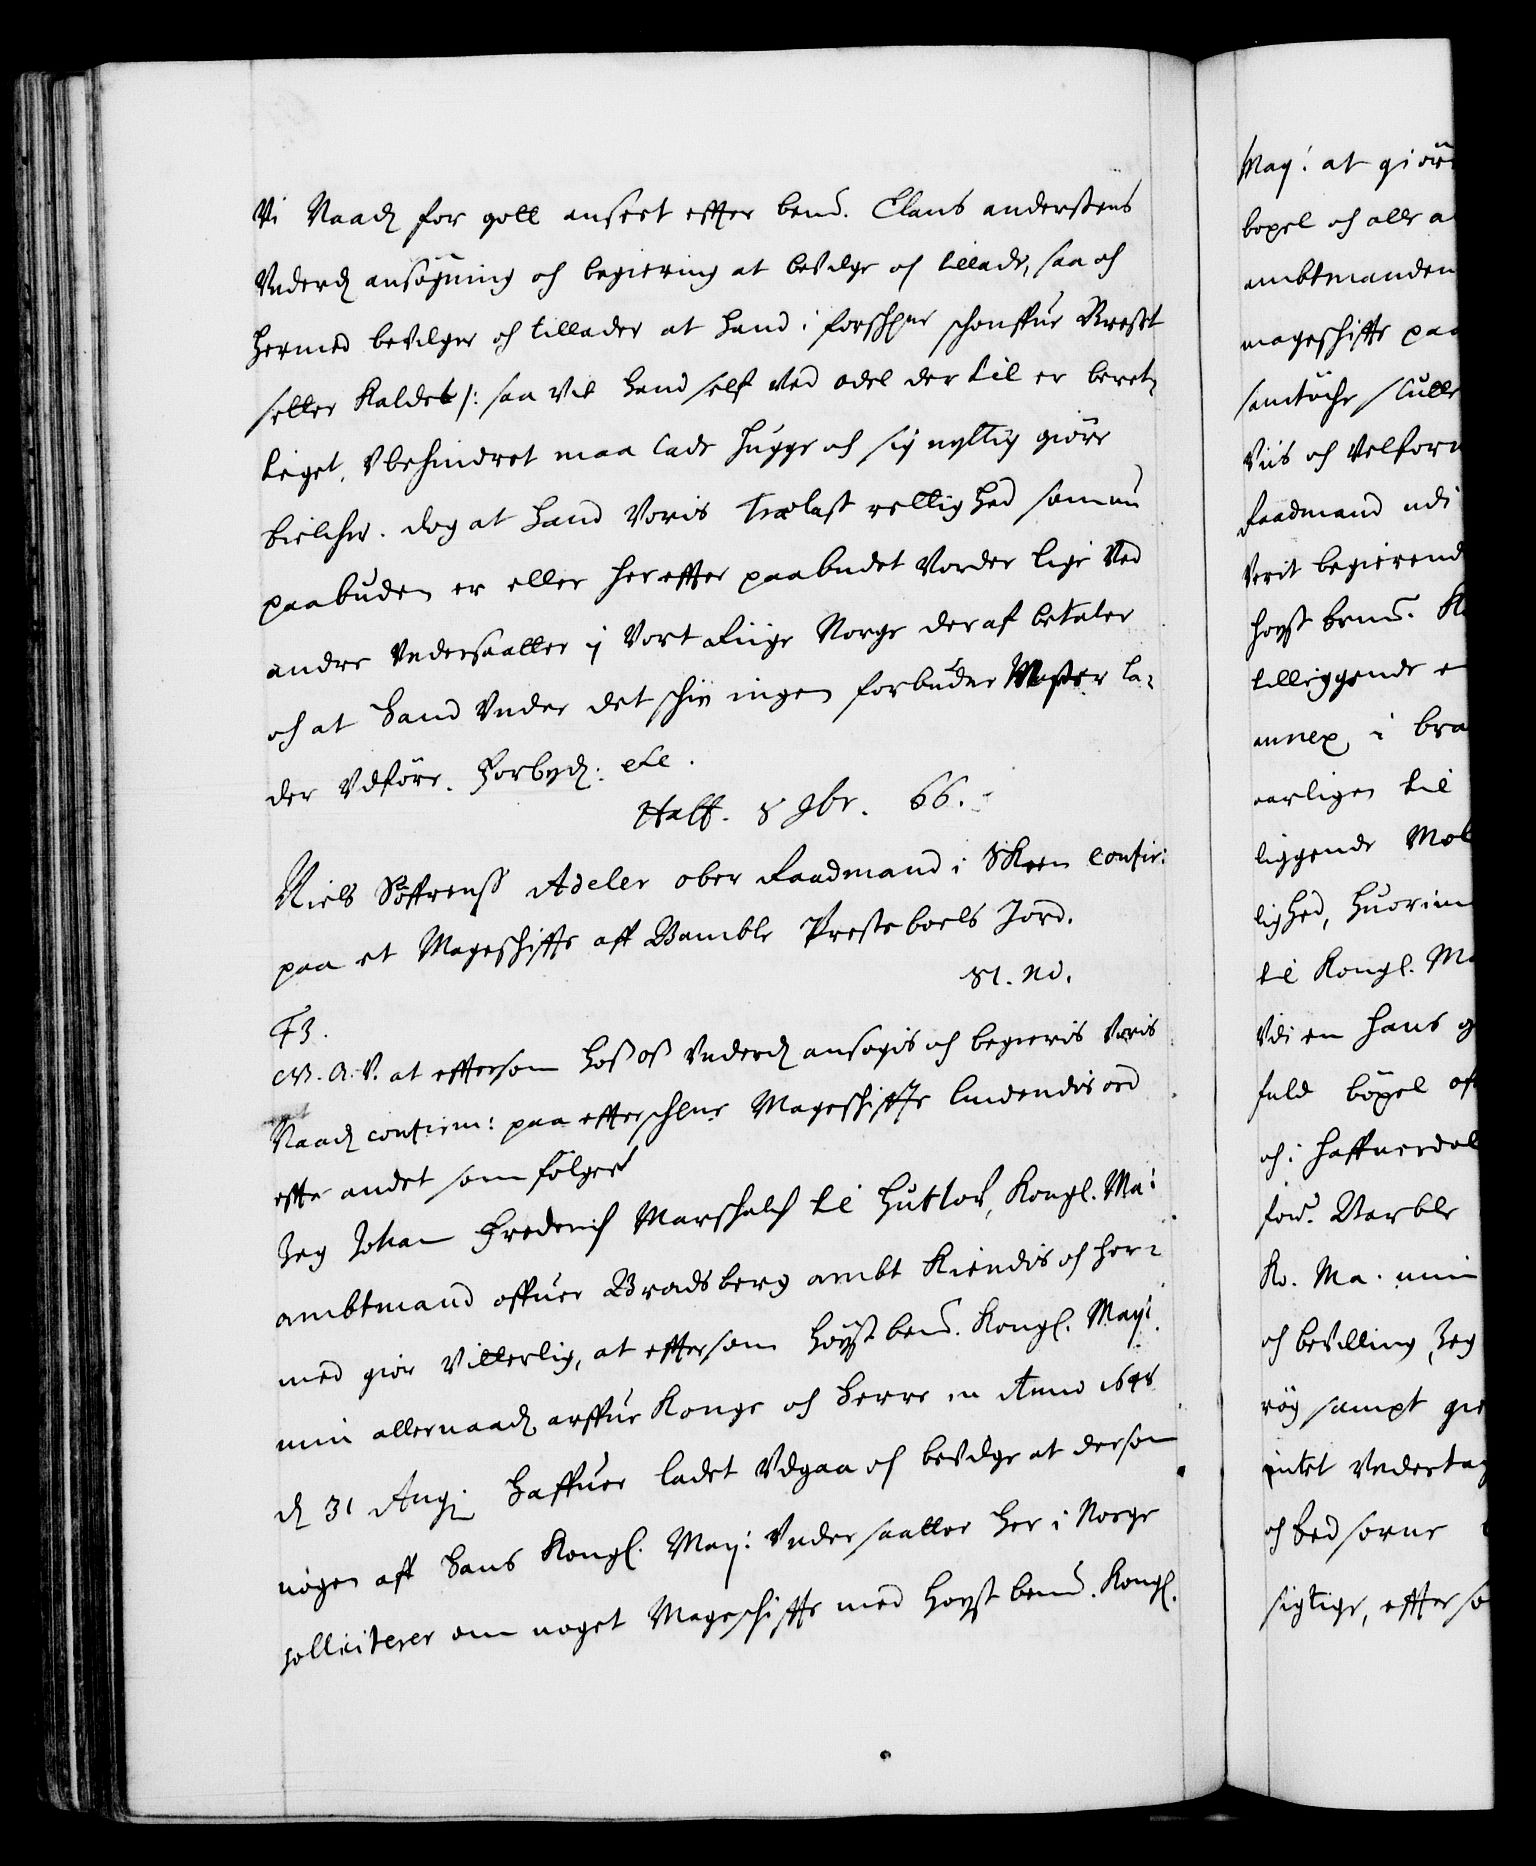 Vi Naadt for gott anseet efter bemt. Claus anderssens
Underdt ansögning och begiering at bevilge och tillade, saa och
hermed bevilger och tillader at hand i forschne schouffue
setter Kaldet /: saa vit hand self ved odel der til er beret-
tiget, Ubehindret maa lade hugge och sig nyttig giöre
bielcher. dog at hand Voris Trælast rettighed som nu
paabuden er eller her efter paabudet Vorder lige Ved
andre Undersaatter i Vort Rige Norge deraf betaler
och at hand Under det schin ingen forbuden Master la-
der Udföre. Forbydt: etc.
Haff. 8 9br. 66.
Niels Söffrenss Adeler ober Raadmand i Skeen confir:
paa et Mageschiffte aff Bamble Prestebools Jord.
St. No.
F3.
G. A. V. at eftersom hoss oss Underdt ansögis och begieris Voris
Naadt confirm: paa efterschne Mageschiffte liudendis ord
efter andet som fölger
Jeg Johan Frederich Marschalch til Hutlof, Kongl. Ma:
ambtmand offuer Bradsberg ambt Kiendis och her-
med giör Vitterlig, at eftersom höyst bemt. Kongl. May:
min allernaadt arffue Konge och Herre en Anno 1648
dt 31 Aug: haffuer ladet Udgaa och bevilge at dersom
nogen aff hans Kongl. May: Undersaatter her i Norge
solliciterer om noget Mageschiffte med höyst bemt. Kongl.
May: at giör
bopel och alle a
ambtmanden
mageschiffte paa
samtöche sculle
Viis och Velforn
Raadmand udi
Verit begierend
höyst bemt. K
tilliggende e
annex i bra
aarligen til
liggende Mol
lighed, huorim
til Kongl. Ma
Udi en hans g
fuld böxel
och i haffuerdal
ford. Varble
Ko. Ma. min
och bevilling, Jeg
röy sampt gie
intet Undertag
och bedsorne
sigtige, efterso